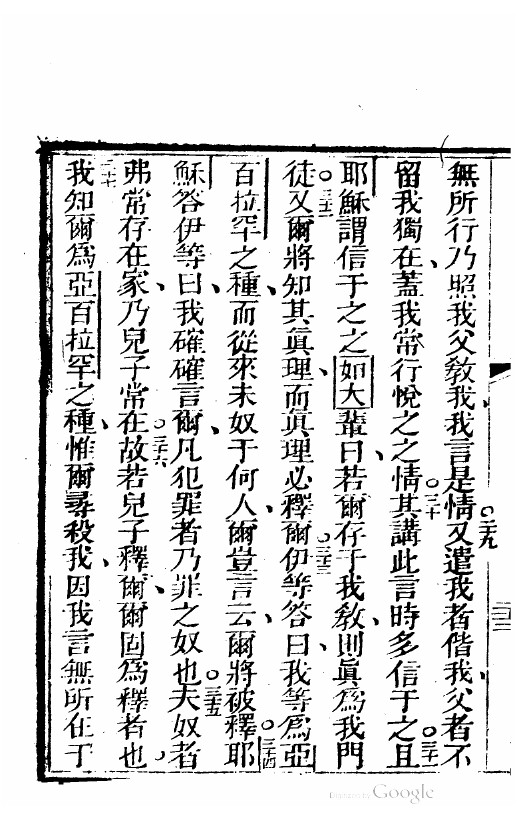 無所行乃照我父敎我我言是情二十九又遣我者偕我父者不
留我獨在蓋我常行悅之之情三十其講此言時多信于之三十一且
耶穌謂信于之之如大輩曰若爾存于我敎則眞爲我門
徒三十二又爾將知其眞理而眞理必釋爾三十三伊等答曰我等爲亞
百拉罕之種而從來未奴于何人爾豈言云爾將被釋三十四耶
穌答伊等曰我確確言爾凡犯罪者乃罪之奴也三十五夫奴者
弗常存在家乃兒子常在三十六故若兒子釋爾爾固爲釋者也
三十七我知爾爲亞百拉罕之種惟爾尋殺我因我言無所在于
Digitized by Google